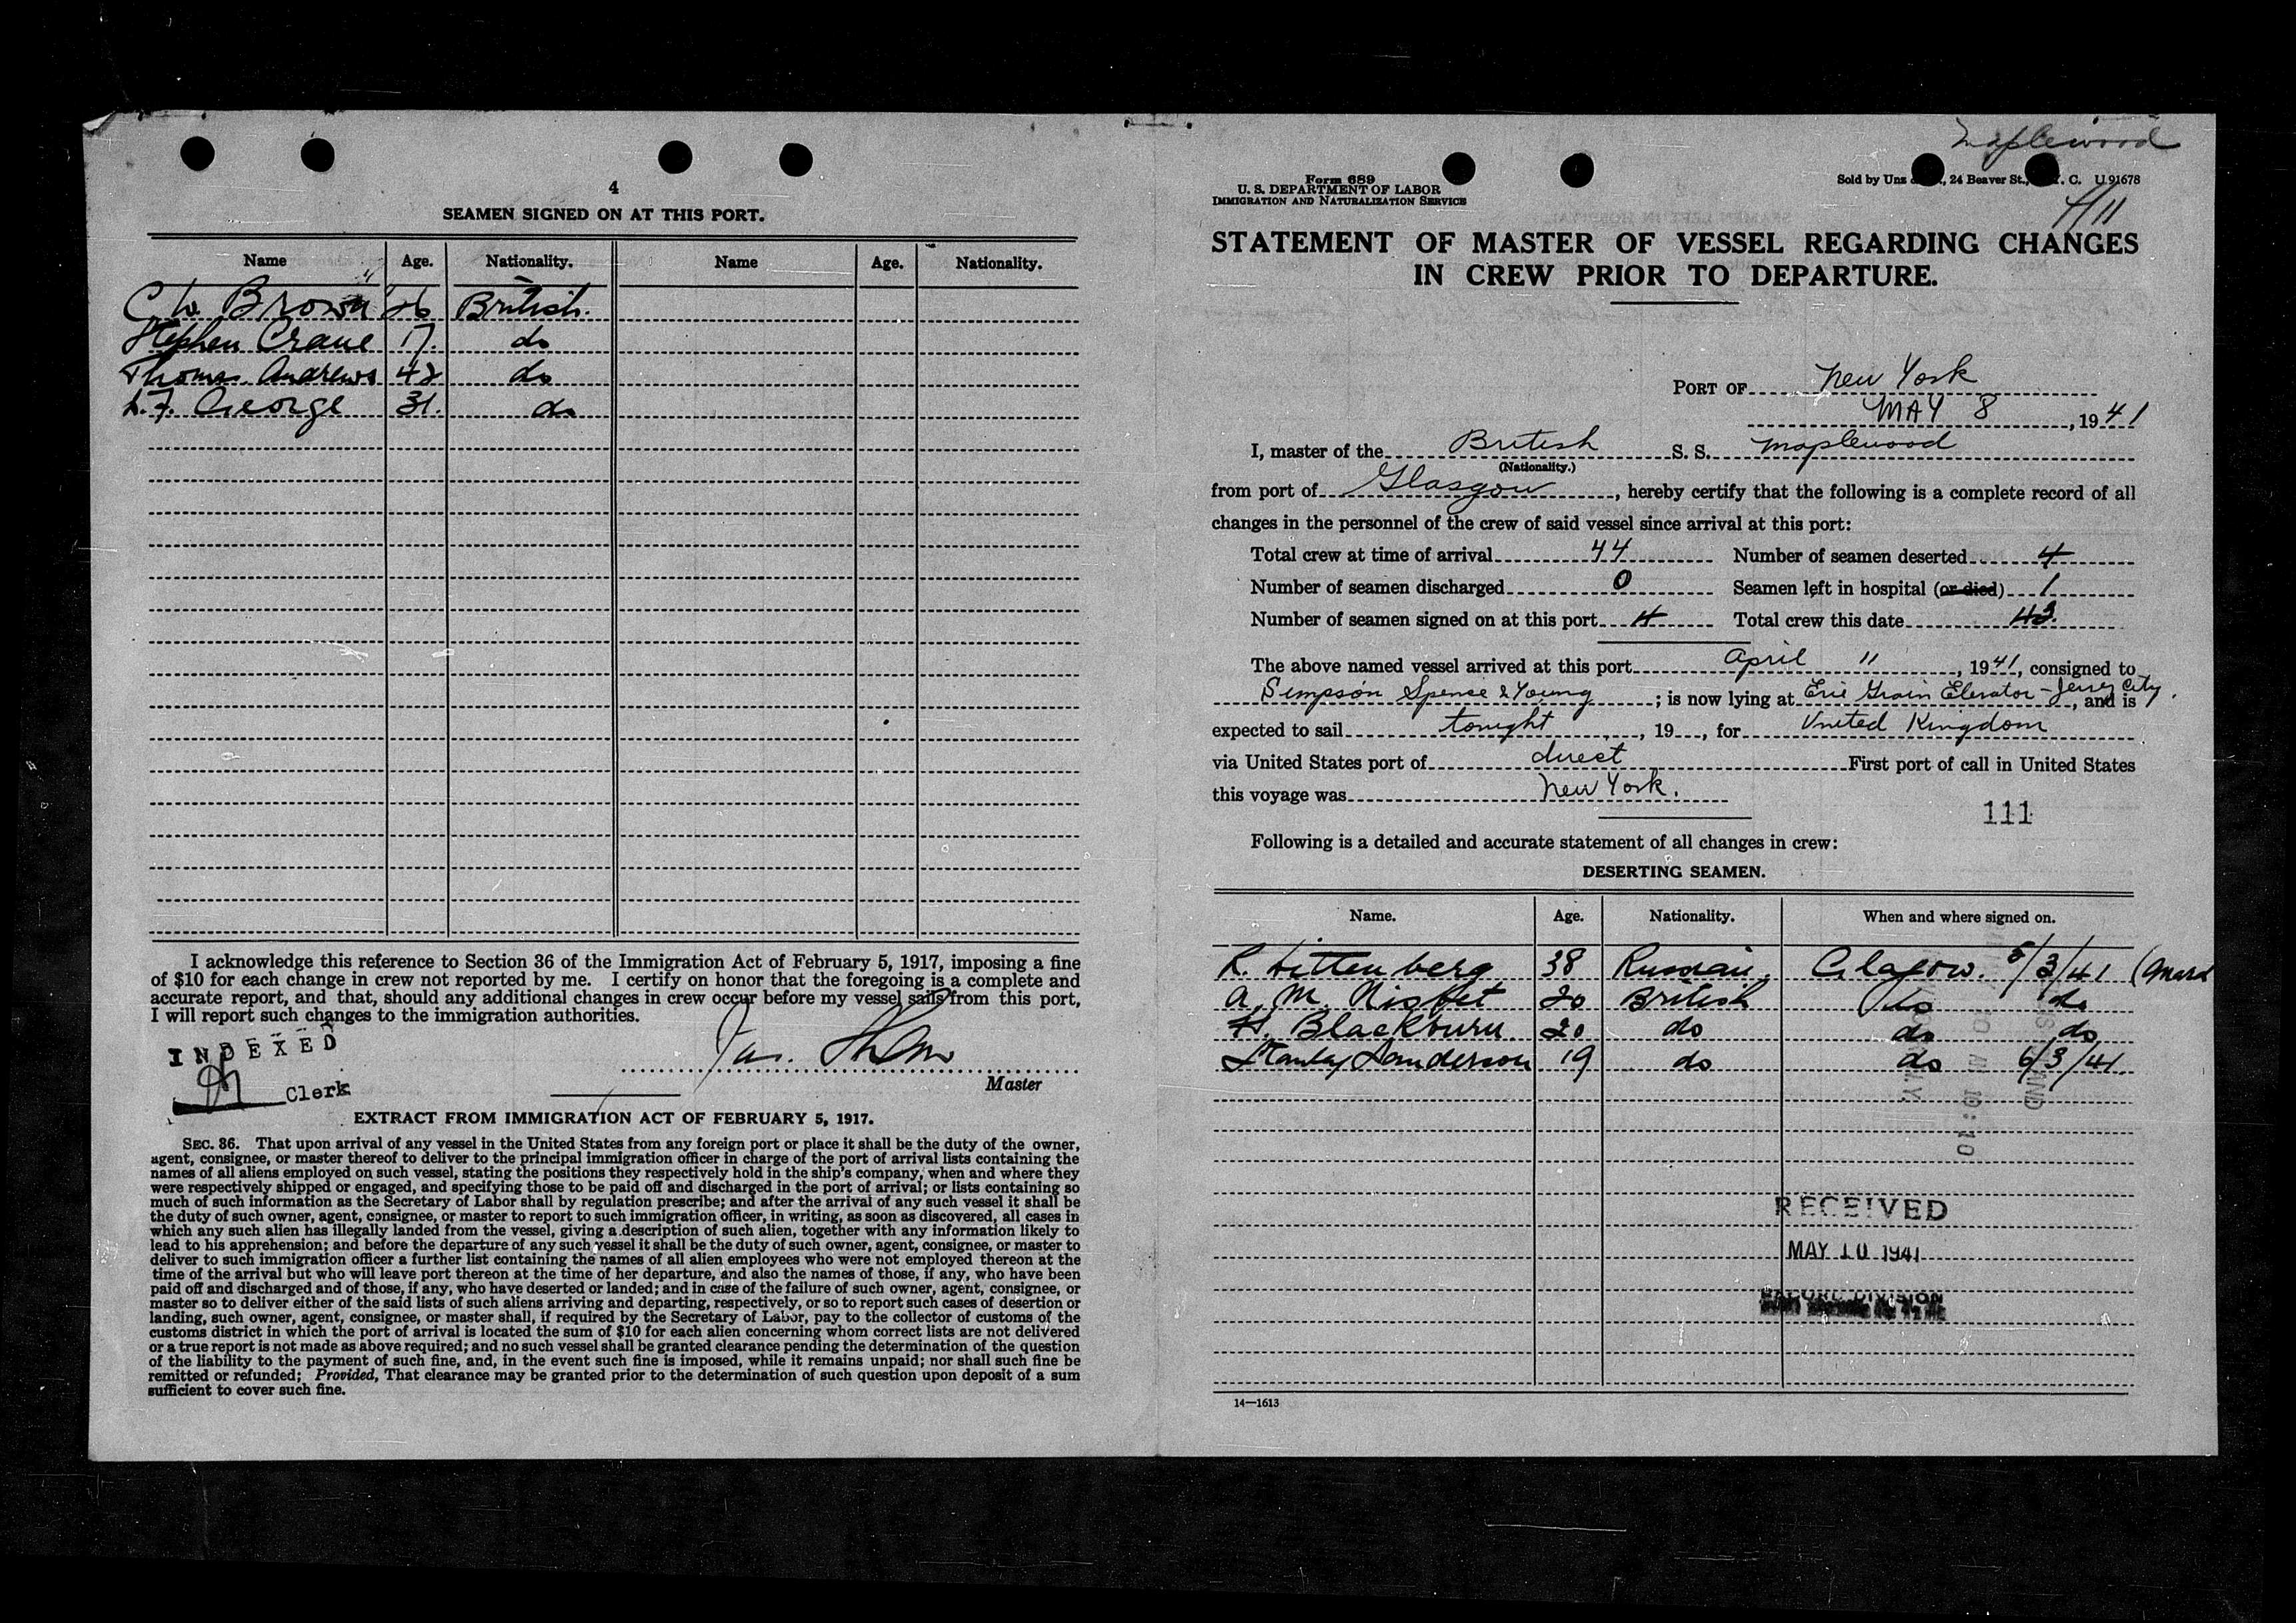 4
SEAMEN SIGNED ON AT THIS PORT.
Name Age. Nationality. Name Age. Nationality.
C. W. Brown 26 British.
Stephen Crane 17. do
Thomas Andrews 42 do
L. F. George 31. do
I acknowledge this reference to Section 36 of the Immigration Act of February 5, 1917, imposing a fine
of $10 for each change in crew not reported by me. I certify on honor that the foregoing is a complete and
accurate report, and that, should any additional changes in crew occur before my vessel sails from this port,
I will report such changes to the immigration authorities.
INDEXED
Clerk
Jas.
Master
EXTRACT FROM IMMIGRATION ACT OF FEBRUARY 5, 1917.
SEC. 36. That upon arrival of any vessel in the United States from any foreign port or place it shall be the duty of the owner,
agent, consignee, or master thereof to deliver to the principal immigration officer in charge of the port of arrival lists containing the
names of all aliens employed on such vessel, stating the positions they respectively hold in the ship's company, when and where they
were respectively shipped or engaged, and specifying those to be paid off and discharged in the port of arrival; or lists containing so
much of such information as the Secretary of Labor shall by regulation prescribe; and after the arrival of any such vessel it shall be
the duty of such owner, agent, consignee, or master to report to such immigration officer, in writing, as soon as discovered, all cases in
which any such alien has illegally landed from the vessel, giving a description of such alien, together with any information likely to
lead to his apprehension; and before the departure of any such vessel it shall be the duty of such owner, agent, consignee, or master to
deliver to such immigration officer a further list containing the names of all alien employees who were not employed thereon at the
time of the arrival but who will leave port thereon at the time of her departure, and also the names of those, if any, who have been
paid off and discharged and of those, if any, who have deserted or landed; and in case of the failure of such owner, agent, consignee, or
master so to deliver either of the said lists of such aliens arriving and departing, respectively, or so to report such cases of desertion or
landing, such owner, agent, consignee, or master shall, if required by the Secretary of Labor, pay to the collector of customs of the
customs district in which the port of arrival is located the sum of $10 for each alien concerning whom correct lists are not delivered
or a true report is not made as above required; and no such vessel shall be granted clearance pending the determination of the question
of the liability to the payment of such fine, and, in the event such fine is imposed, while it remains unpaid; nor shall such fine be
remitted or refunded; Provided, That clearance may be granted prior to the determination of such question upon deposit of a sum
sufficient to cover such fine.
Maplewood
Form 689
U. S. DEPARTMENT OF LABOR
IMMIGRATION AND NATURALIZATION SERVICE
Sold by Unz 24 Beaver St., . C. U 91678
4/11
STATEMENT OF MASTER OF VESSEL REGARDING CHANGES
IN CREW PRIOR TO DEPARTURE.
PORT OF New York
MAY 8, 1941
I, master of the British S. S. Maplewood
(Nationality.)
from port of Glasgow, hereby certify that the following is a complete record of all
changes in the personnel of the crew of said vessel since arrival at this port:
Total crew at time of arrival 44 Number of seamen deserted 4
Number of seamen discharged 0 Seamen left in hospital (or died) 1
Number of seamen signed on at this port 4 Total crew this date 43.
The above named vessel arrived at this port April 11, 1941, consigned to
Simpson Spence & Young; is now lying at Erie Grain Elevator - Jersey City, and is
expected to sail tonight, 19, for United Kingdom
via United States port of direct First port of call in United States
this voyage was New York.
111
Following is a detailed and accurate statement of all changes in crew:
DESERTING SEAMEN.
Name. Age. Nationality. When and where signed on.
R. Wittenberg 38 Russian. Glasgow. 5/3/41
A. M. Nisbet 20 British do do
H. Blackburn. 20 do do do
Stanley Sanderson 19 do do 6/3/41
RECEIVED
MAY 10 1941
RECORD DIVISION
14—1613